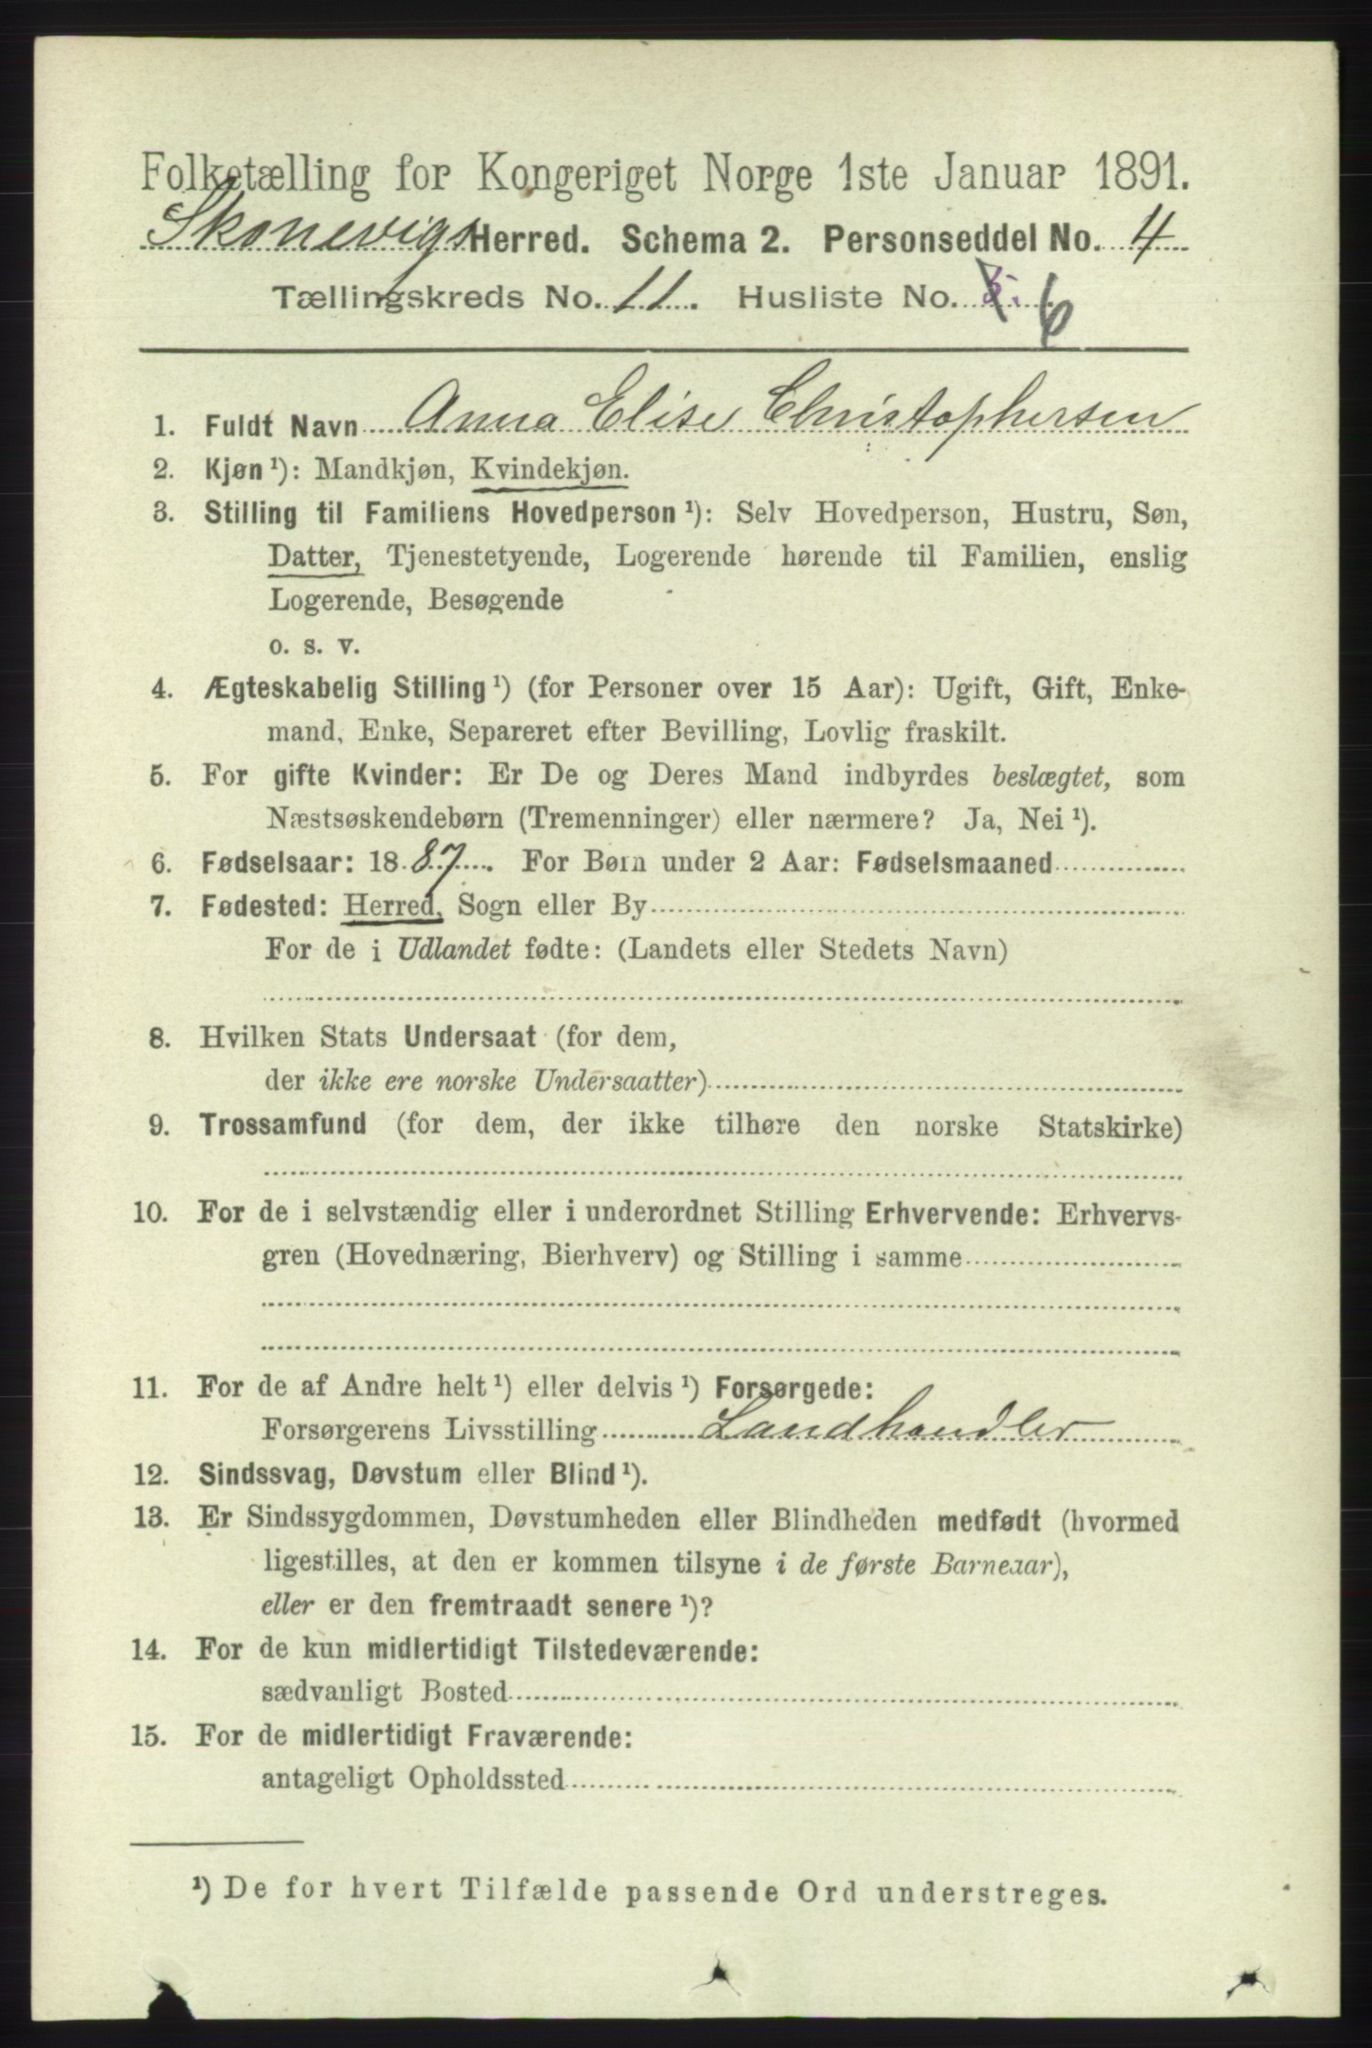 Folketælling for Kongeriget Norge 1ste Januar 1891.
Skonevigs Herred. Schema 2. Personseddel No. 4
Tællingskreds No. 11. Husliste No. 5. 6
1. Fuldt Navn Anna Elise Christophersen
2. Kjøn ¹): Mandkjøn, Kvindekjøn.
3. Stilling til Familiens Hovedperson ¹): Selv Hovedperson, Hustru, Søn,
Datter, Tjenestetyende, Logerende hørende til Familien, enslig
Logerende, Besøgende
o. s. v.
4. Ægteskabelig Stilling ¹) (for Personer over 15 Aar): Ugift, Gift, Enke-
mand, Enke, Separeret efter Bevilling, Lovlig fraskilt.
5. For gifte Kvinder: Er De og Deres Mand indbyrdes beslægtet, som
Næstsøskendebørn (Tremenninger) eller nærmere? Ja, Nei ¹).
6. Fødselsaar: 1887. For Børn under 2 Aar: Fødselsmaaned
7. Fødested: Herred, Sogn eller By
For de i Udlandet fødte: (Landets eller Stedets Navn)
8. Hvilken Stats Undersaat (for dem,
der ikke ere norske Undersaatter)
9. Trossamfund (for dem, der ikke tilhøre den norske Statskirke)
10. For de i selvstændig eller i underordnet Stilling Erhvervende: Erhvervs-
gren (Hovednæring, Bierhverv) og Stilling i samme
11. For de af Andre helt ¹) eller delvis ¹) Forsørgede:
Forsørgerens Livsstilling Landhandler
12. Sindssvag, Døvstum eller Blind ¹).
13. Er Sindssygdommen, Døvstumheden eller Blindheden medfødt (hvormed
ligestilles, at den er kommen tilsyne i de første Barneaar),
eller er den fremtraadt senere ¹)?
14. For de kun midlertidigt Tilstedeværende:
sædvanligt Bosted
15. For de midlertidigt Fraværende:
antageligt Opholdssted
¹) De for hvert Tilfælde passende Ord understreges.